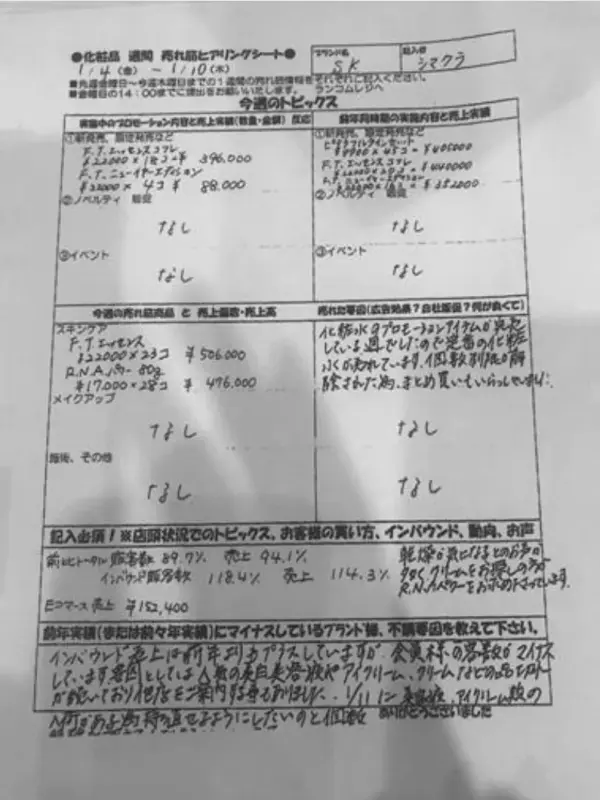 ●化粧品 週間 売れ筋ヒアリングシート●
ブランド名 SK 記入者 シマクラ
1/4(金)~1/10(木)
■先週金曜日~今週木曜日までの1週間の売れ筋情報をそれぞれご記入ください。
■金曜日の14:00までに提出をお願いいたします。 ランコムレジへ
今週のトピックス
実施中のプロモーション内容と売上実績(数量・金額) 反応
前年同時期の実施内容と売上実績
①新発売、限定発売など
F.T.エッセンスコフレ
¥22000×18コ 396,000
F.T.ニューイヤーエディション
¥22000×4コ ¥88,000
①新発売、限定発売など
×45コ=¥405000
F.T.エッセンスコフレ
¥22000×20コ ¥440000
¥352000
②ノベルティ 販促
なし
②ノベルティ 販促
なし
③イベント
なし
③イベント
なし
今週の売れ筋商品 と 売上個数・売上高
売れた要因(広告効果?自社販促?何が良くて)
スキンケア
F.T.エッセンス
¥22000×23コ ¥506,000
R.N.A.パワー 80g
¥17,000×28コ ¥476,000
化粧水のプロモーションアイテムが
している週でしたので定番の化粧
が売れています。個数制限が解
除された為、まとめ買いもいらっしゃいました
メイクアップ
なし
なし
施術、その他
なし
なし
記入必須!※店頭状況でのトピックス、お客様の買い方、インバウンド、動向、お声
前比トータル 販客数 89.7% 売上 94.1%
インバウンド販客数 118.4% 売上 114.3%
Eコマース売上 ¥152,400
乾燥が気になるとのお声が
多く、クリームをお探しの方が
R.N.Aパワーをお求め下さっています。
前年実績(または前々年実績)にマイナスしているブランド様、不調要因を教えて下さい。
インバウンド売上は前年よりもプラスしていますが、会員様の客数がマイナス
しています。要因としては人気の美白美容液やアイクリーム、クリームなどの
が続いており他店をご案内する事もありました。1/11に美容液、アイクリーム
入荷がある為持ち直せるようにしたいのと個数
ありがとうございました